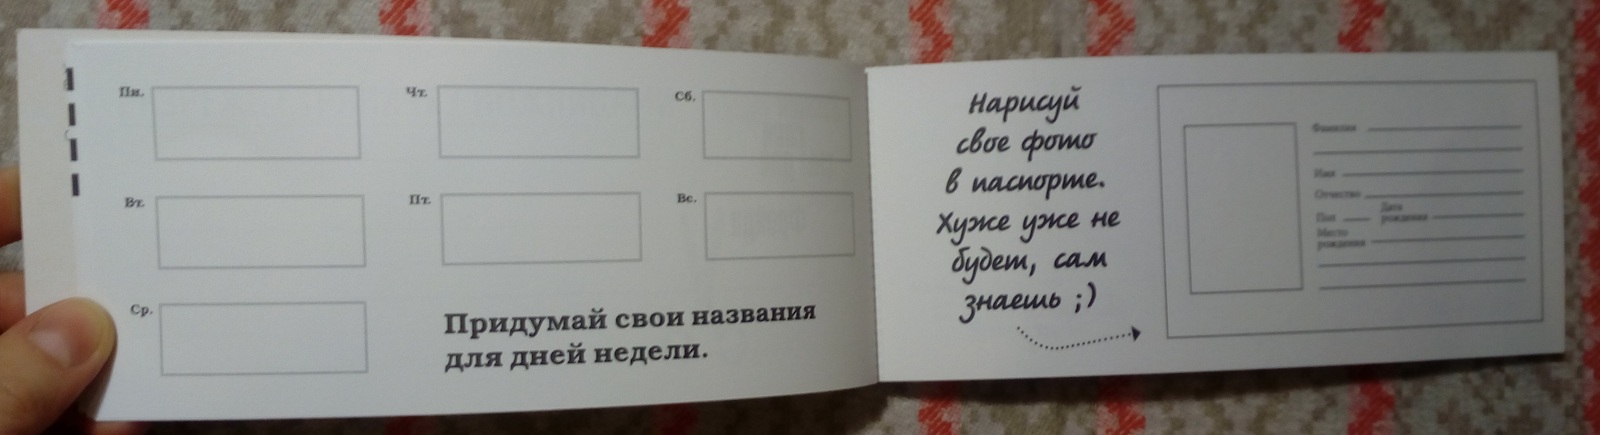 Пн.
Вт.
Ср.
Чт.
Пт.
Сб.
Вс.
Придумай свои названия
для дней недели.
Нарисуй
свое фото
в паспорте.
Хуже уже не
будет, сам
знаешь ;)
Фамилия
Имя
Отчество
Пол
Дата
рождения
Место
рождения